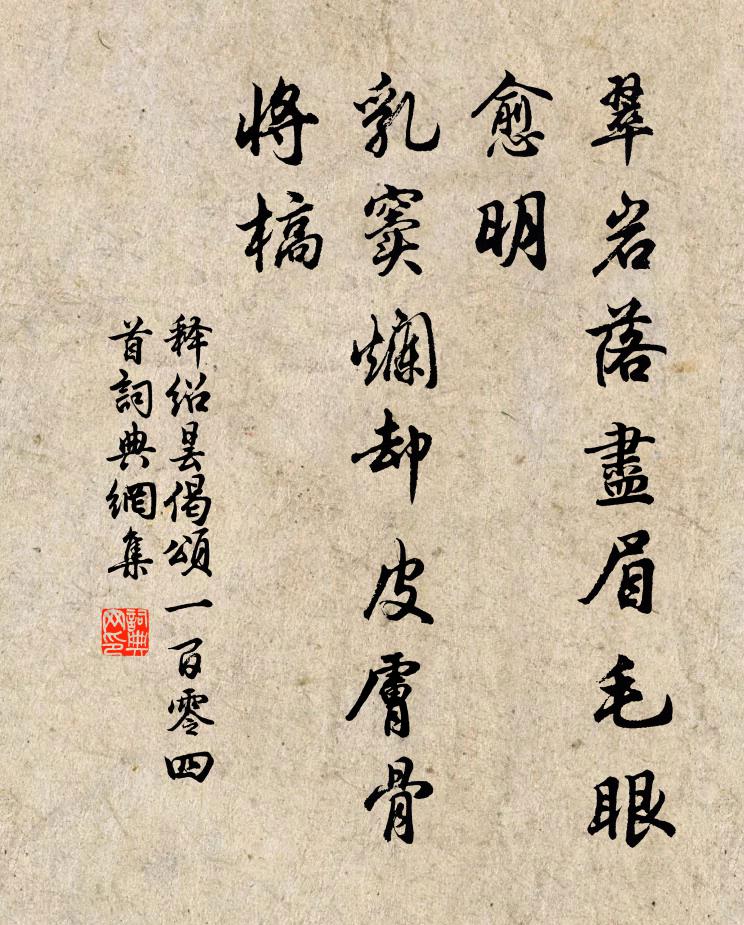 翠岩落盡眉毛眼
愈明
乳竇爛却皮膚骨
將槁
释绍昙偈頌一百零四
首詞典網集
詞典
网印